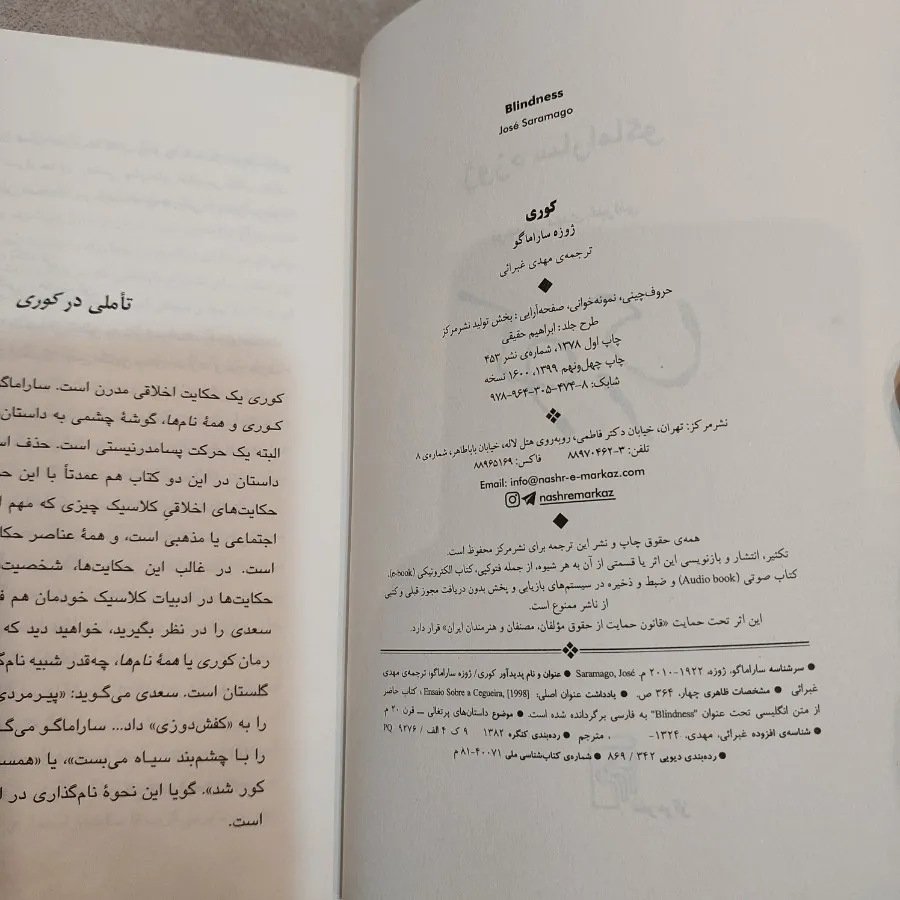 Blindness
José Saramago
کوری
ژوزه ساراماگو
ترجمه‌ی مهدی غبرائی
حروف‌چینی، نمونه‌خوانی، صفحه‌آرایی: بخش تولید نشرمرکز
طرح جلد: ابراهیم حقیقی
چاپ اول ۱۳۷۸، شماره‌ی نشر ۴۵۳
چاپ چهل‌ونهم ۱۳۹۹، ۱۶۰۰ نسخه
شابک: ۸-۴۷۴-۳۰۵-۹۶۴-۹۷۸
نشرمرکز: تهران، خیابان دکتر فاطمی، روبه‌روی هتل لاله، خیابان باباطاهر، شماره‌ی ۸
تلفن: ۳-۸۸۹۷۰۴۶۲ فاکس: ۸۸۹۶۵۱۶۹
Email: info@nashr-e-markaz.com
nashremarkaz
همه‌ی حقوق چاپ و نشر این ترجمه برای نشرمرکز محفوظ است.
تکثیر، انتشار و بازنویسی این اثر یا قسمتی از آن به هر شیوه، از جمله فتوکپی، کتاب الکترونیکی (e-book)،
کتاب صوتی (Audio book) و ضبط و ذخیره در سیستم‌های بازیابی و پخش بدون دریافت مجوز قبلی و کتبی
از ناشر ممنوع است.
این اثر تحت حمایت «قانون حمایت از حقوق مؤلفان، مصنفان و هنرمندان ایران» قرار دارد.
● سرشناسه ساراماگو، ژوزه، ۱۹۲۲-۲۰۱۰ م. Saramago, José ● عنوان و نام پدیدآور کوری/ ژوزه ساراماگو؛ ترجمه‌ی مهدی
غبرائی ● مشخصات ظاهری چهار، ۳۶۴ ص. ● یادداشت عنوان اصلی: Ensaio Sobre a Cegueira, [1998]؛ کتاب حاضر
از متن انگلیسی تحت عنوان "Blindness" به فارسی برگردانده شده است. ● موضوع داستان‌های پرتغالی ــ قرن ۲۰ م
● شناسه‌ی افزوده غبرائی، مهدی، ۱۳۲۴- ، مترجم ● رده‌بندی کنگره ۱۳۸۲ ۹ ک ۴ الف / PQ ۹۲۷۶
● رده‌بندی دیویی ۳۴۲ / ۸۶۹ ● شماره‌ی کتاب‌شناسی ملی ۴۰۰۷۱-۸۱ م
تأملی در کوری
کوری یک حکایت اخلاقی مدرن است. ساراماگو
کوری و همهٔ نام‌ها، گوشهٔ چشمی به داستان
البته یک حرکت پسامدرنیستی است. حذف
داستان در این دو کتاب هم عمدتاً با این
حکایت‌های اخلاقیِ کلاسیک چیزی که مهم
اجتماعی یا مذهبی است، و همهٔ عناصر
است. در غالب این حکایت‌ها، شخصیت
حکایت‌ها در ادبیات کلاسیک خودمان هم
سعدی را در نظر بگیرید، خواهید دید که
رمان کوری یا همهٔ نام‌ها، چه‌قدر شبیه
گلستان است. سعدی می‌گوید: «پیرمردی
را به «کفش‌دوزی» داد... ساراماگو
را با چشم‌بند سیاه می‌بست»، یا
کور شد». گویا این نحوهٔ نام‌گذاری در
است.